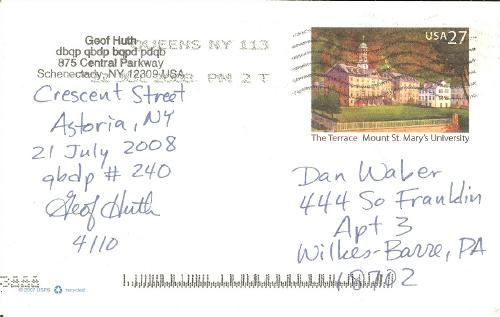 Geof Huth
dbqp qbdp bqpd pdqb
875 Central Parkway
Schenectady, NY 12309 USA
QUEENS NY 113
PM 2 T
USA 27
The Terrace Mount St. Mary's University
Crescent Street
Astoria, NY
21 July 2008
qbdp # 240
Geof Huth
4110
Dan Waber
444 So Franklin
Apt 3
Wilkes-Barre, PA
18702
© 2007 USPS recycled